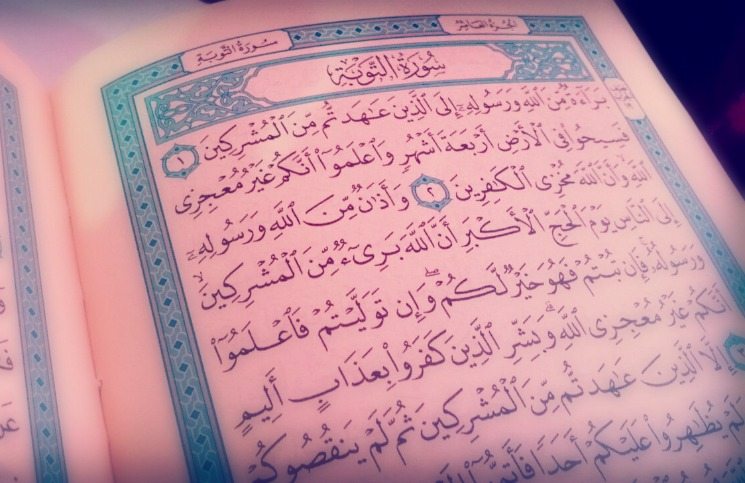 الجزء العاشر
سورة التوبة
سُورَةُ التَّوْبَةِ
بَرَآءَةٌ مِّنَ ٱللَّهِ وَرَسُولِهِۦٓ إِلَى ٱلَّذِينَ عَـٰهَدتُّم مِّنَ ٱلْمُشْرِكِينَ ١
فَسِيحُوا۟ فِى ٱلْأَرْضِ أَرْبَعَةَ أَشْهُرٍ وَٱعْلَمُوٓا۟ أَنَّكُمْ غَيْرُ مُعْجِزِى
ٱللَّهِ وَأَنَّ ٱللَّهَ مُخْزِى ٱلْكَـٰفِرِينَ ٢ وَأَذَٰنٌ مِّنَ ٱللَّهِ وَرَسُولِهِۦٓ
إِلَى ٱلنَّاسِ يَوْمَ ٱلْحَجِّ ٱلْأَكْبَرِ أَنَّ ٱللَّهَ بَرِىٓءٌ مِّنَ ٱلْمُشْرِكِينَ
وَرَسُولُهُۥ فَإِن تُبْتُمْ فَهُوَ خَيْرٌ لَّكُمْ وَإِن تَوَلَّيْتُمْ فَٱعْلَمُوٓا۟
أَنَّكُمْ غَيْرُ مُعْجِزِى ٱللَّهِ وَبَشِّرِ ٱلَّذِينَ كَفَرُوا۟ بِعَذَابٍ أَلِيمٍ
إِلَّا ٱلَّذِينَ عَـٰهَدتُّم مِّنَ ٱلْمُشْرِكِينَ ثُمَّ لَمْ يَنقُصُوكُمْ
يُظَـٰهِرُوا۟ عَلَيْكُمْ أَحَدًا فَأَتِمُّوٓا۟